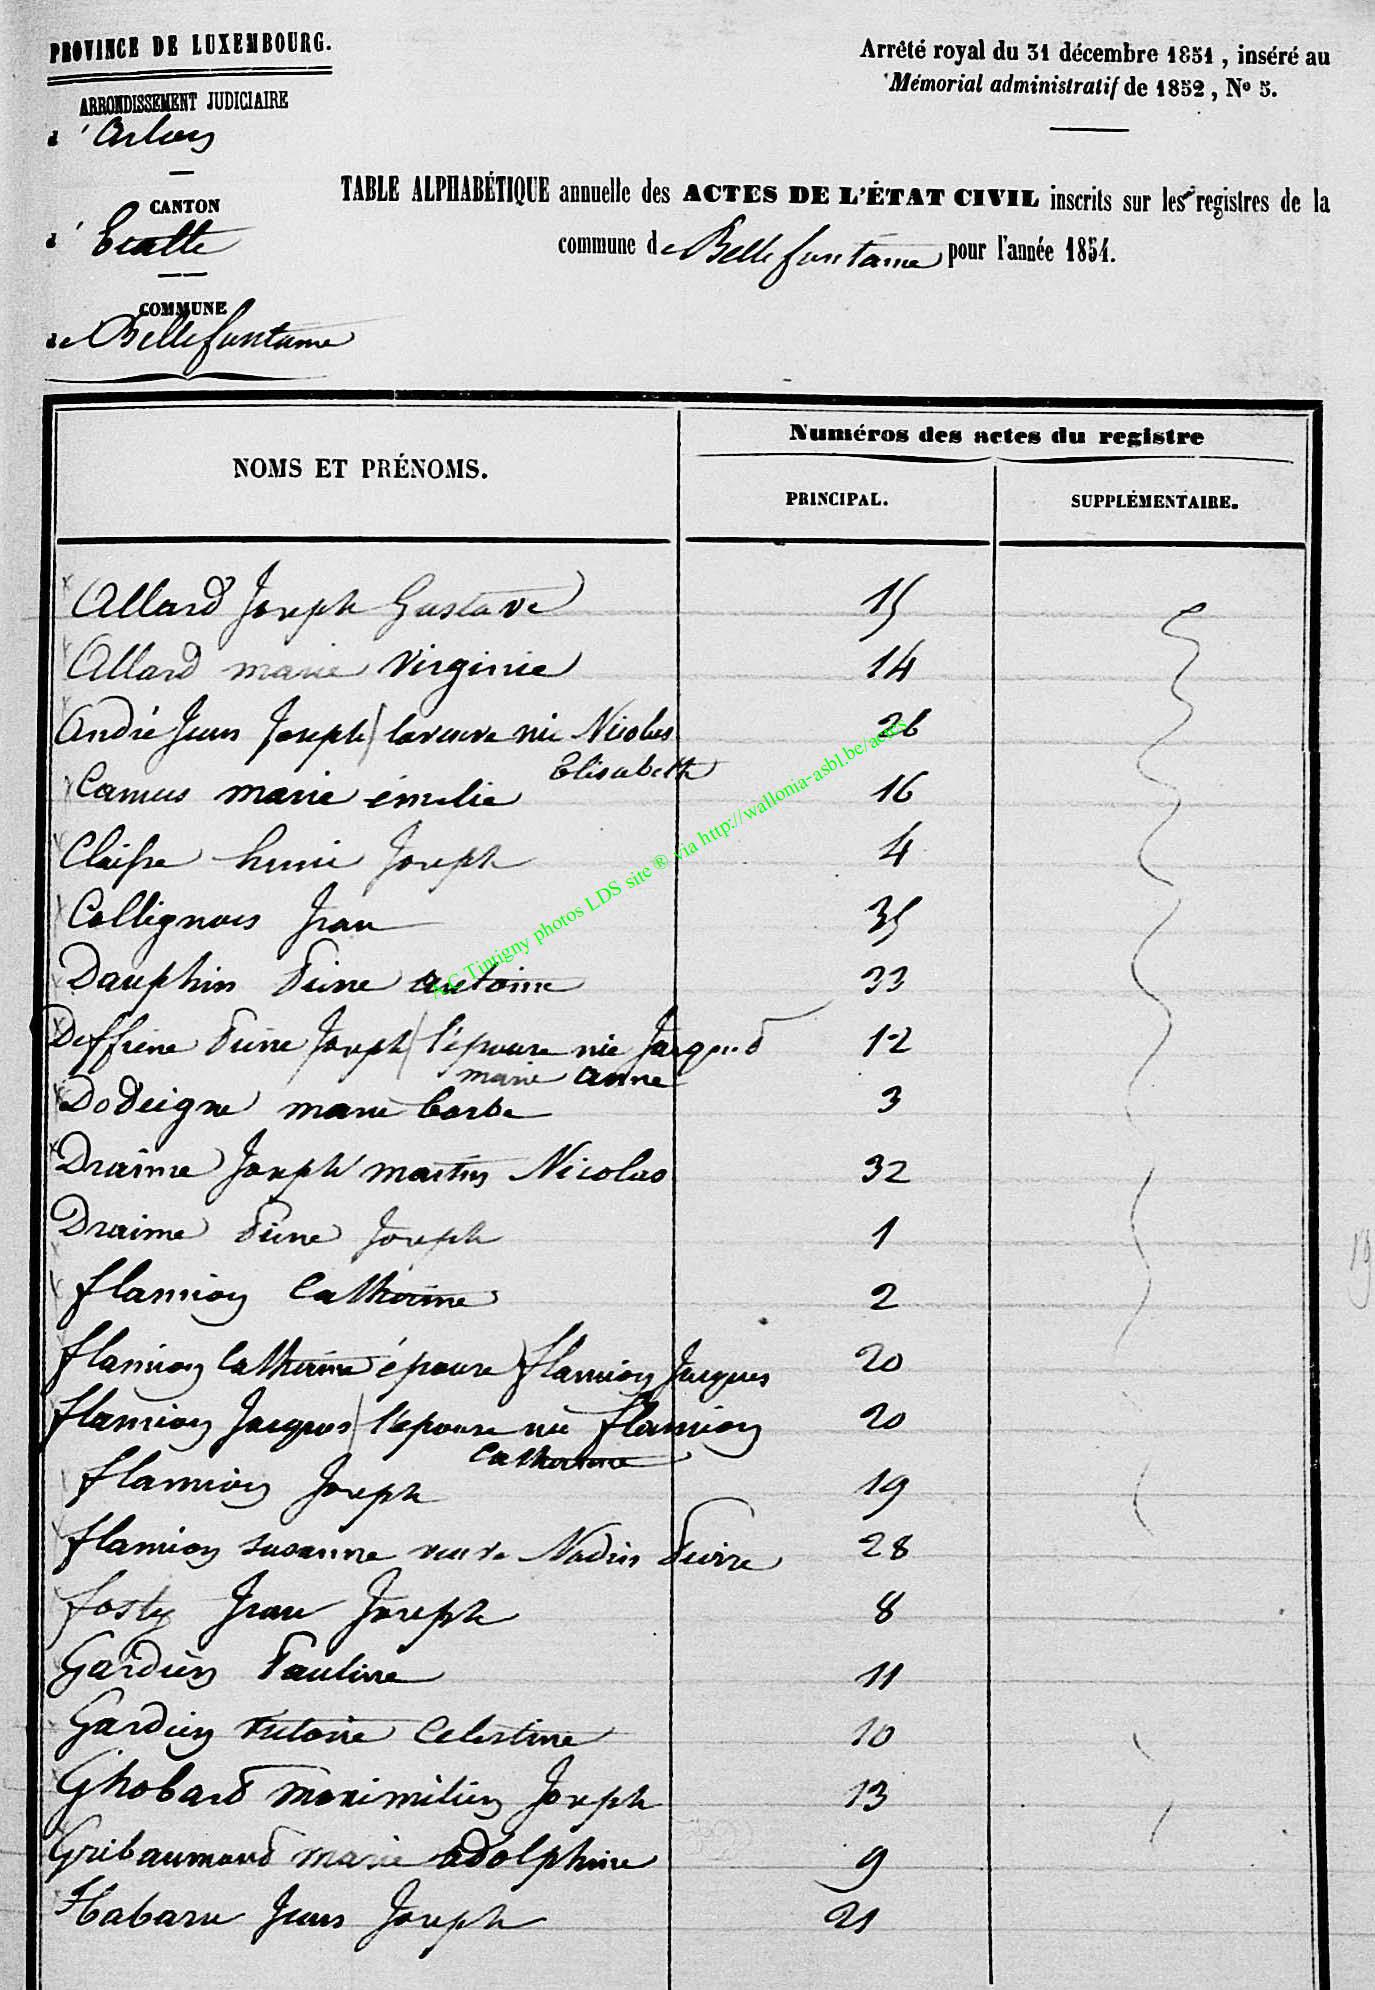 PROVINCE DE LUXEMBOURG.
Arrêté royal du 31 décembre 1851, inséré au
Mémorial administratif de 1852, No 5.
ARRONDISSEMENT JUDICIAIRE
d'Arlon
CANTON
d'Etalle
COMMUNE
de Bellefontaine
TABLE ALPHABÉTIQUE annuelle des ACTES DE L'ÉTAT CIVIL inscrits sur les registres de la
commune de Bellefontaine pour l'année 1851.
NOMS ET PRÉNOMS.
Numéros des actes du registre
PRINCIPAL.
SUPPLÉMENTAIRE.
Allard Joseph Gustave 15
Allard marie Virginie 14
André Jean Joseph / la veuve née Nicolas 26
Elisabeth
Camus marie émelie 16
Claisse henri Joseph 4
Collignon Jean 35
Dauphin Pierre antoine 33
Deffrene Pierre Joseph / l'épouse née Jacquard 12
marie anne
Dodeigne marie barbe 3
Draime Joseph martin Nicolas 32
Draime Pierre Joseph 1
flamion Catherine 2
flamion Catherine épouse flamion Jacques 20
flamion Jacques / l'épouse née flamion 20
Catherine
flamion Joseph 19
flamion susanne veuve Nadin Pierre 28
fosty Jean Joseph 8
Gardien Pauline 11
Gardien Victoire Celestine 10
Ghobard maximilien Joseph 13
Gribaumont marie adolphine 9
Habaru Jean Joseph 21
AC Tintigny photos LDS site ® via http://wallonia-asbl.be/actes